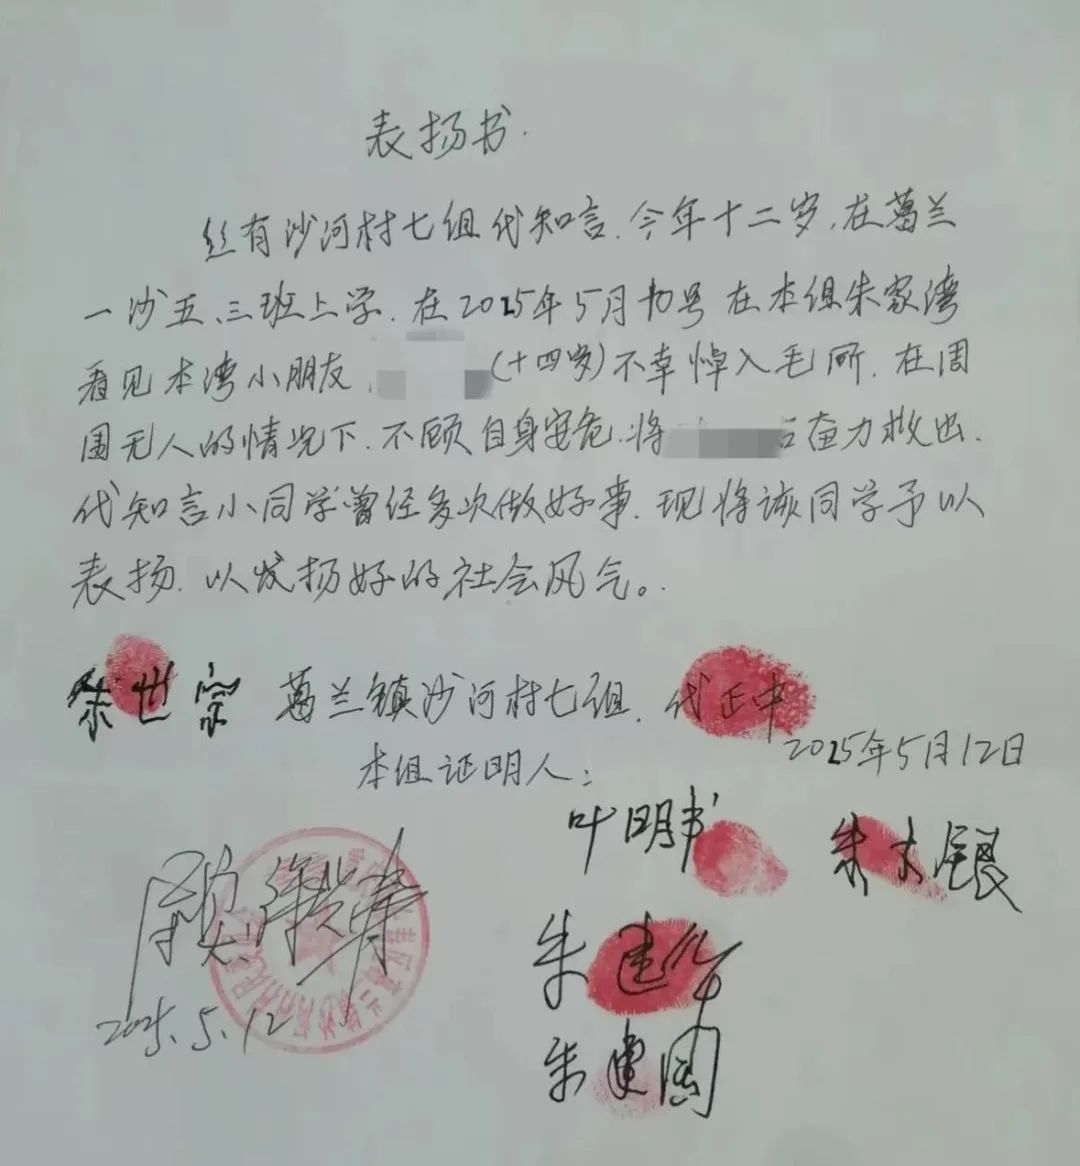 表扬书.
丝有沙河村七组代知言.今年十二岁,在葛兰
一沙五、三班上学.在2025年5月10号在本组朱家湾
看见本湾小朋友(十四岁)不幸悼入毛所.在周
围无人的情况下.不顾自身安危.将奋力救出.
代知言小同学曾经多次做好事.现将该同学予以
表扬.以发扬好的社会风气。.
朱世宗 葛兰镇沙河村七组.代正中
2025年5月12日
本组证明人:
叶明书 朱大银
2025.5.12
朱建华
朱建国